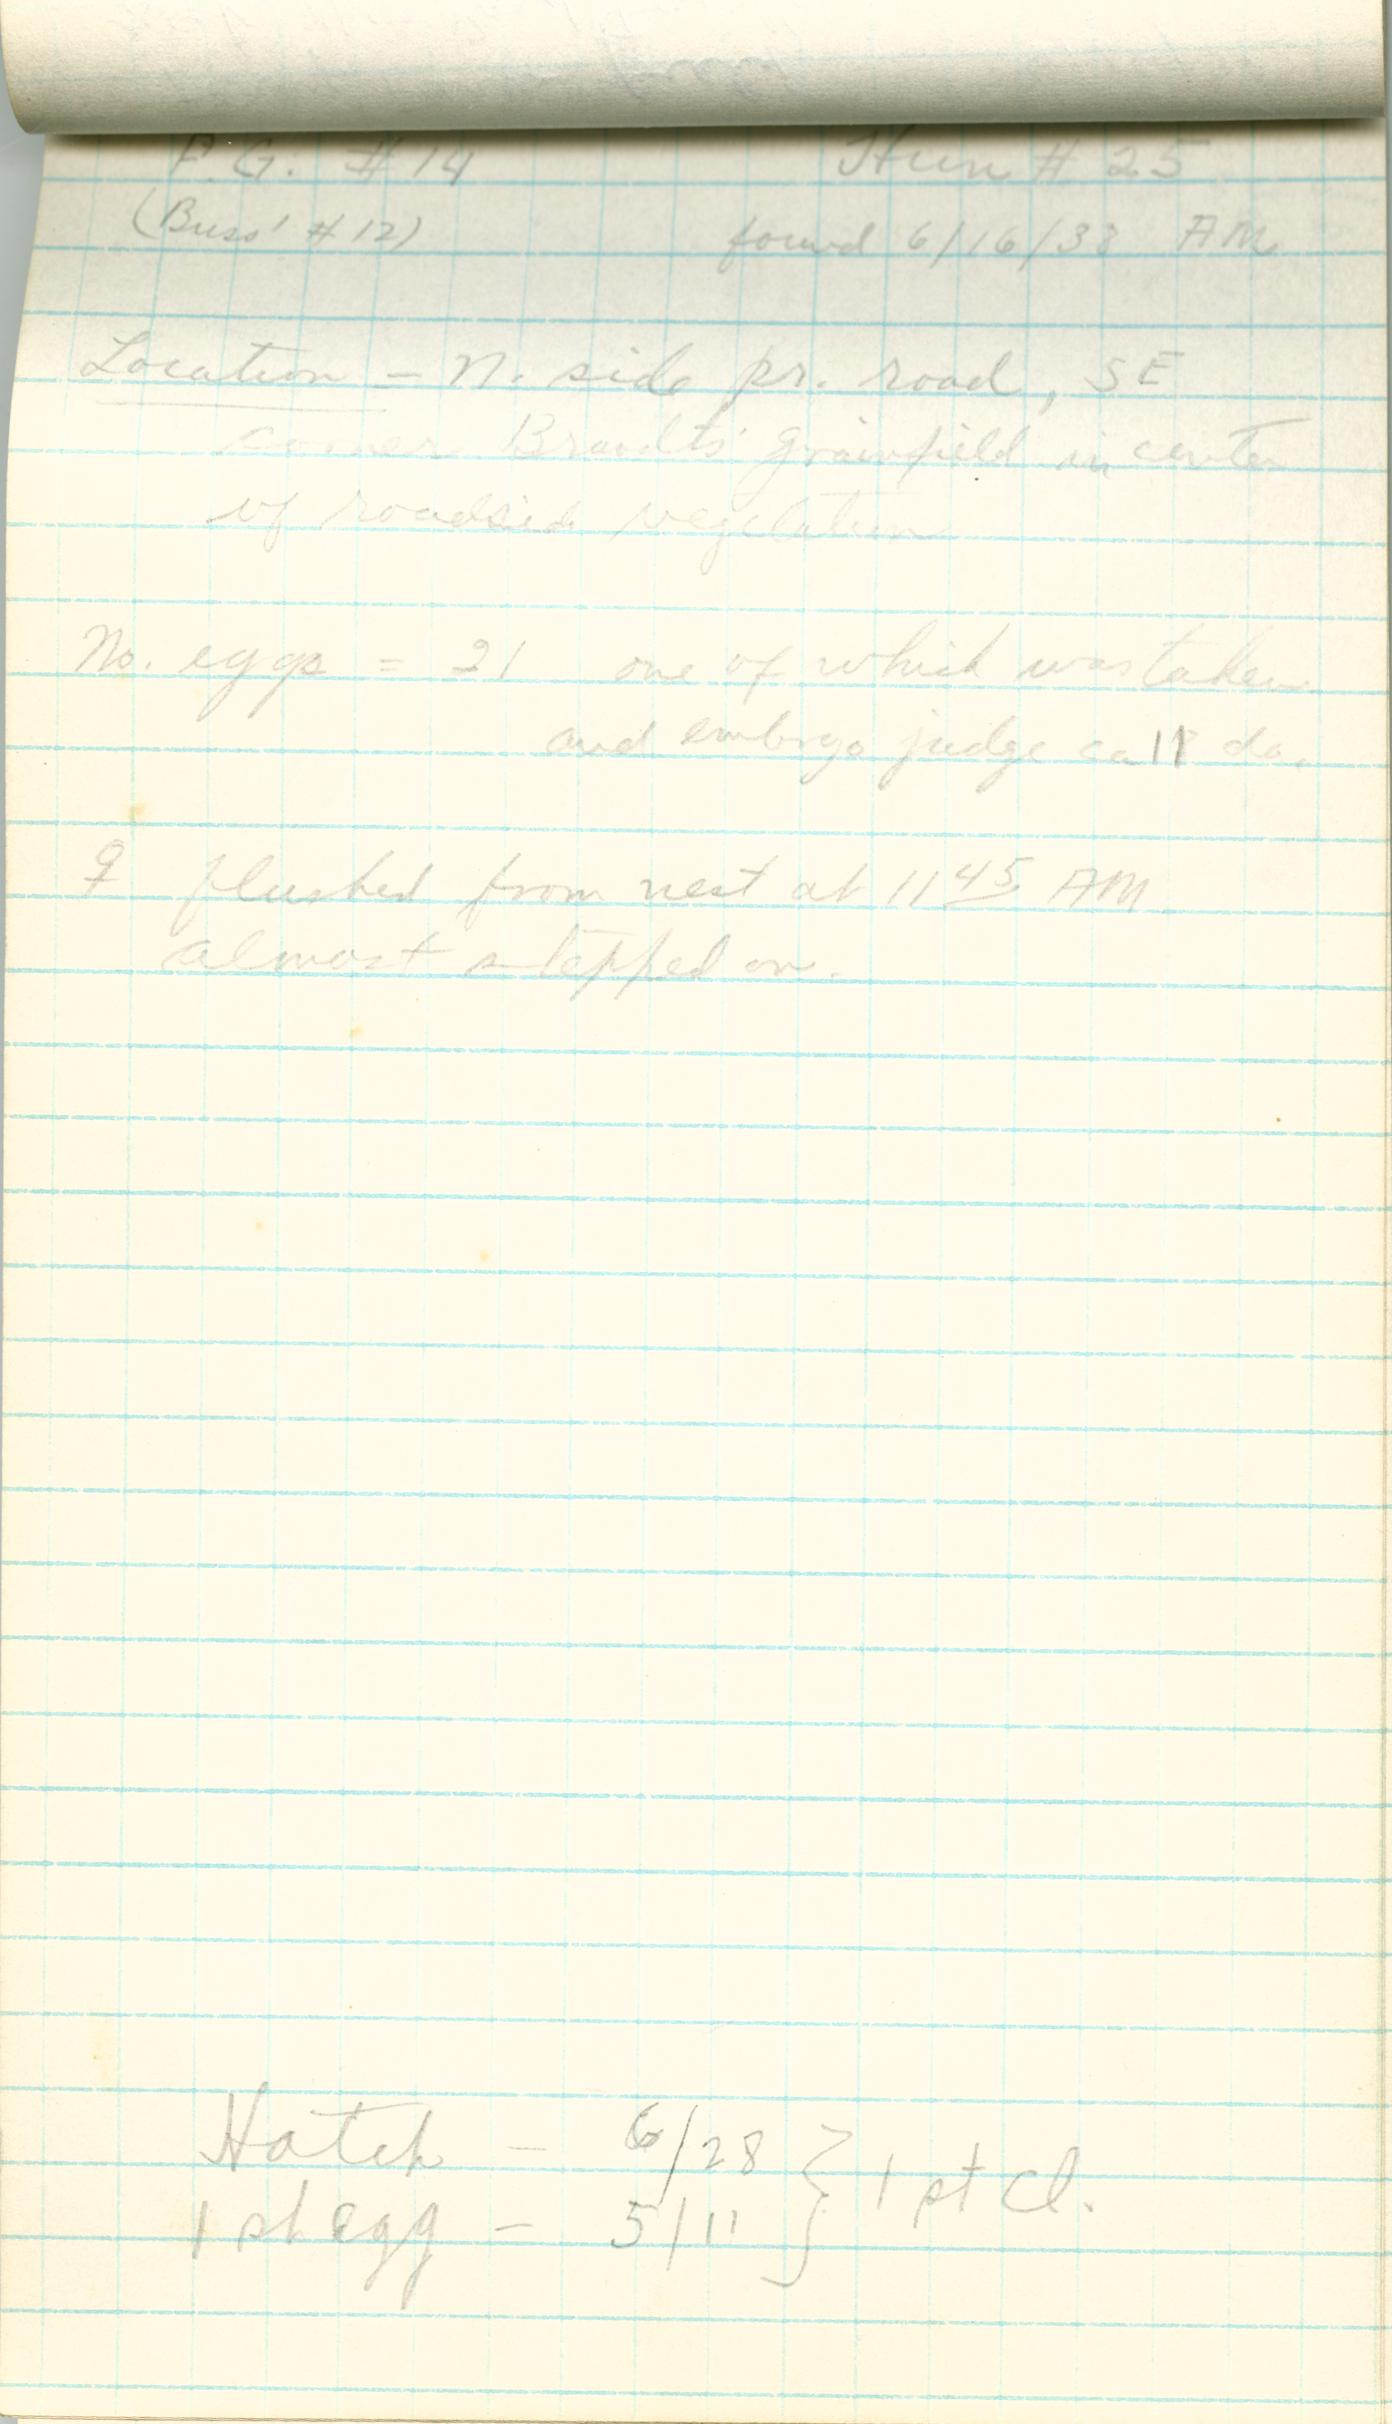 P.G. #14 Hun # 25
(Buss' #12) found 6/16/38 AM
Location - N. side pr. road, SE
corner Brandts' grainfield in center
of roadside vegetation
No. eggs = 21 one of which was taken
and embryo judge ca 11 da.
♀ flushed from nest at 11 45 AM
almost stepped on.
Hatch - 6/28 } 1st cl.
1st egg - 5/11